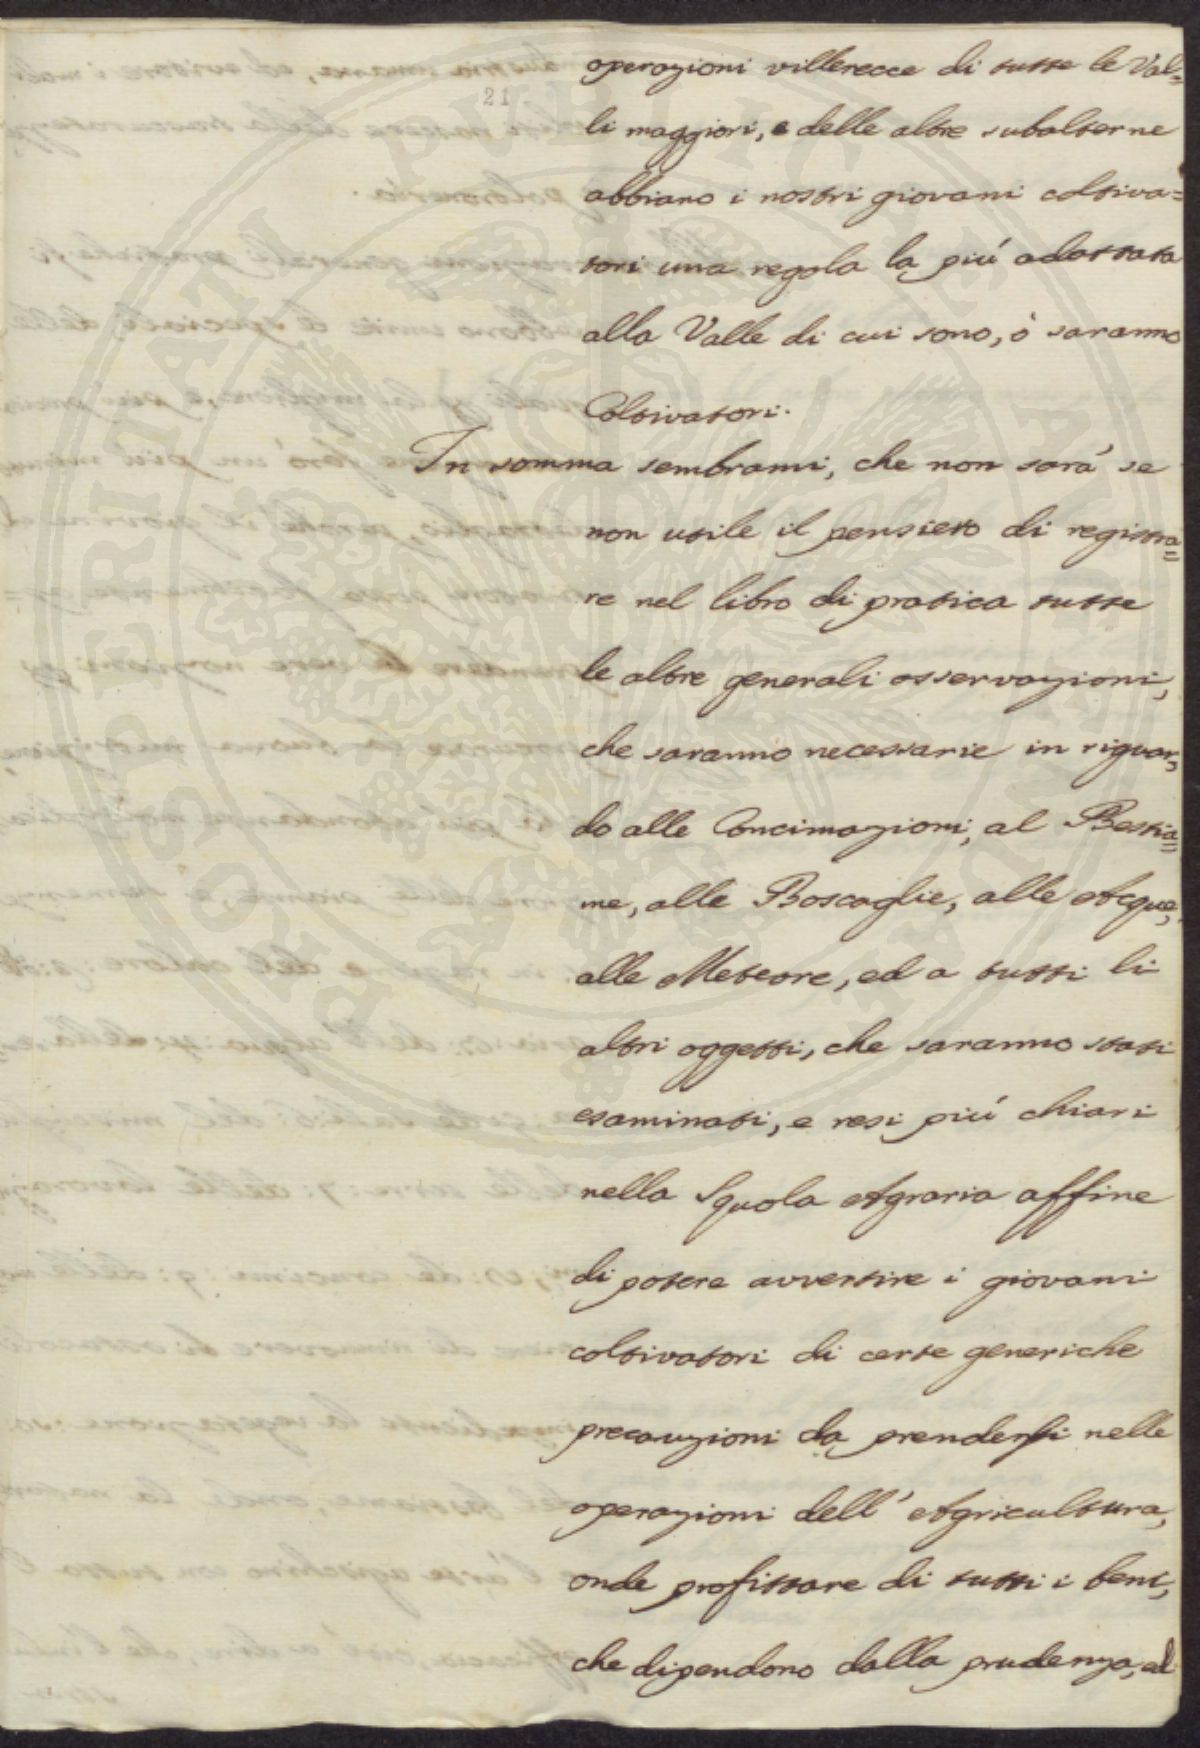 21
operazioni villerecce di tutte le Val=
li maggiori, e delle altre subalterne
abbiano i nostri giovani coltiva=
tori una regola la più adattata
alla Valle di cui sono, ò saranno
Coltivatori.
In somma sembrami, che non sarà se
non utile il pensiero di registra=
re nel libro di pratica tutte
le altre generali osservazioni,
che saranno necessarie in riguar=
do alle Concimazioni, al Bestia=
me, alle Boscaglie, alle Acque,
alle Meteore, ed a tutti li
altri oggetti, che saranno stati
esaminati, e resi più chiari
nella Squola Agraria affine
di potere avvertire i giovani
coltivatori di certe generiche
precauzioni da prendersi nelle
operazioni dell' Agricultura,
onde profittare di tutti i beni,
che dipendono dalla prudenza, ed
PUBLICAE
PROSPERITATI